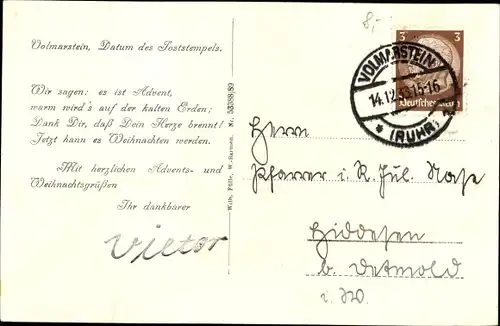 8,-
Volmarstein, Datum des Poststempels.
Wir sagen: es ist Advent,
warm wird's auf der kalten Erden;
Dank Dir, daß Dein Herze brennt!
Jetzt kann es Weihnachten werden.
Mit herzlichen Advents- und
Weihnachtsgrüßen
Ihr dankbarer
Vietor
Wilh. Fülle, W.-Barmen. Nr. 53388/89
3 3
Deutsches Reich
VOLMARSTEIN
14.12. 15-16
* (RUHR)
Herrn
Pfarrer i. R. Jul. Nase
Hiddesen
b. Detmold
i. W.